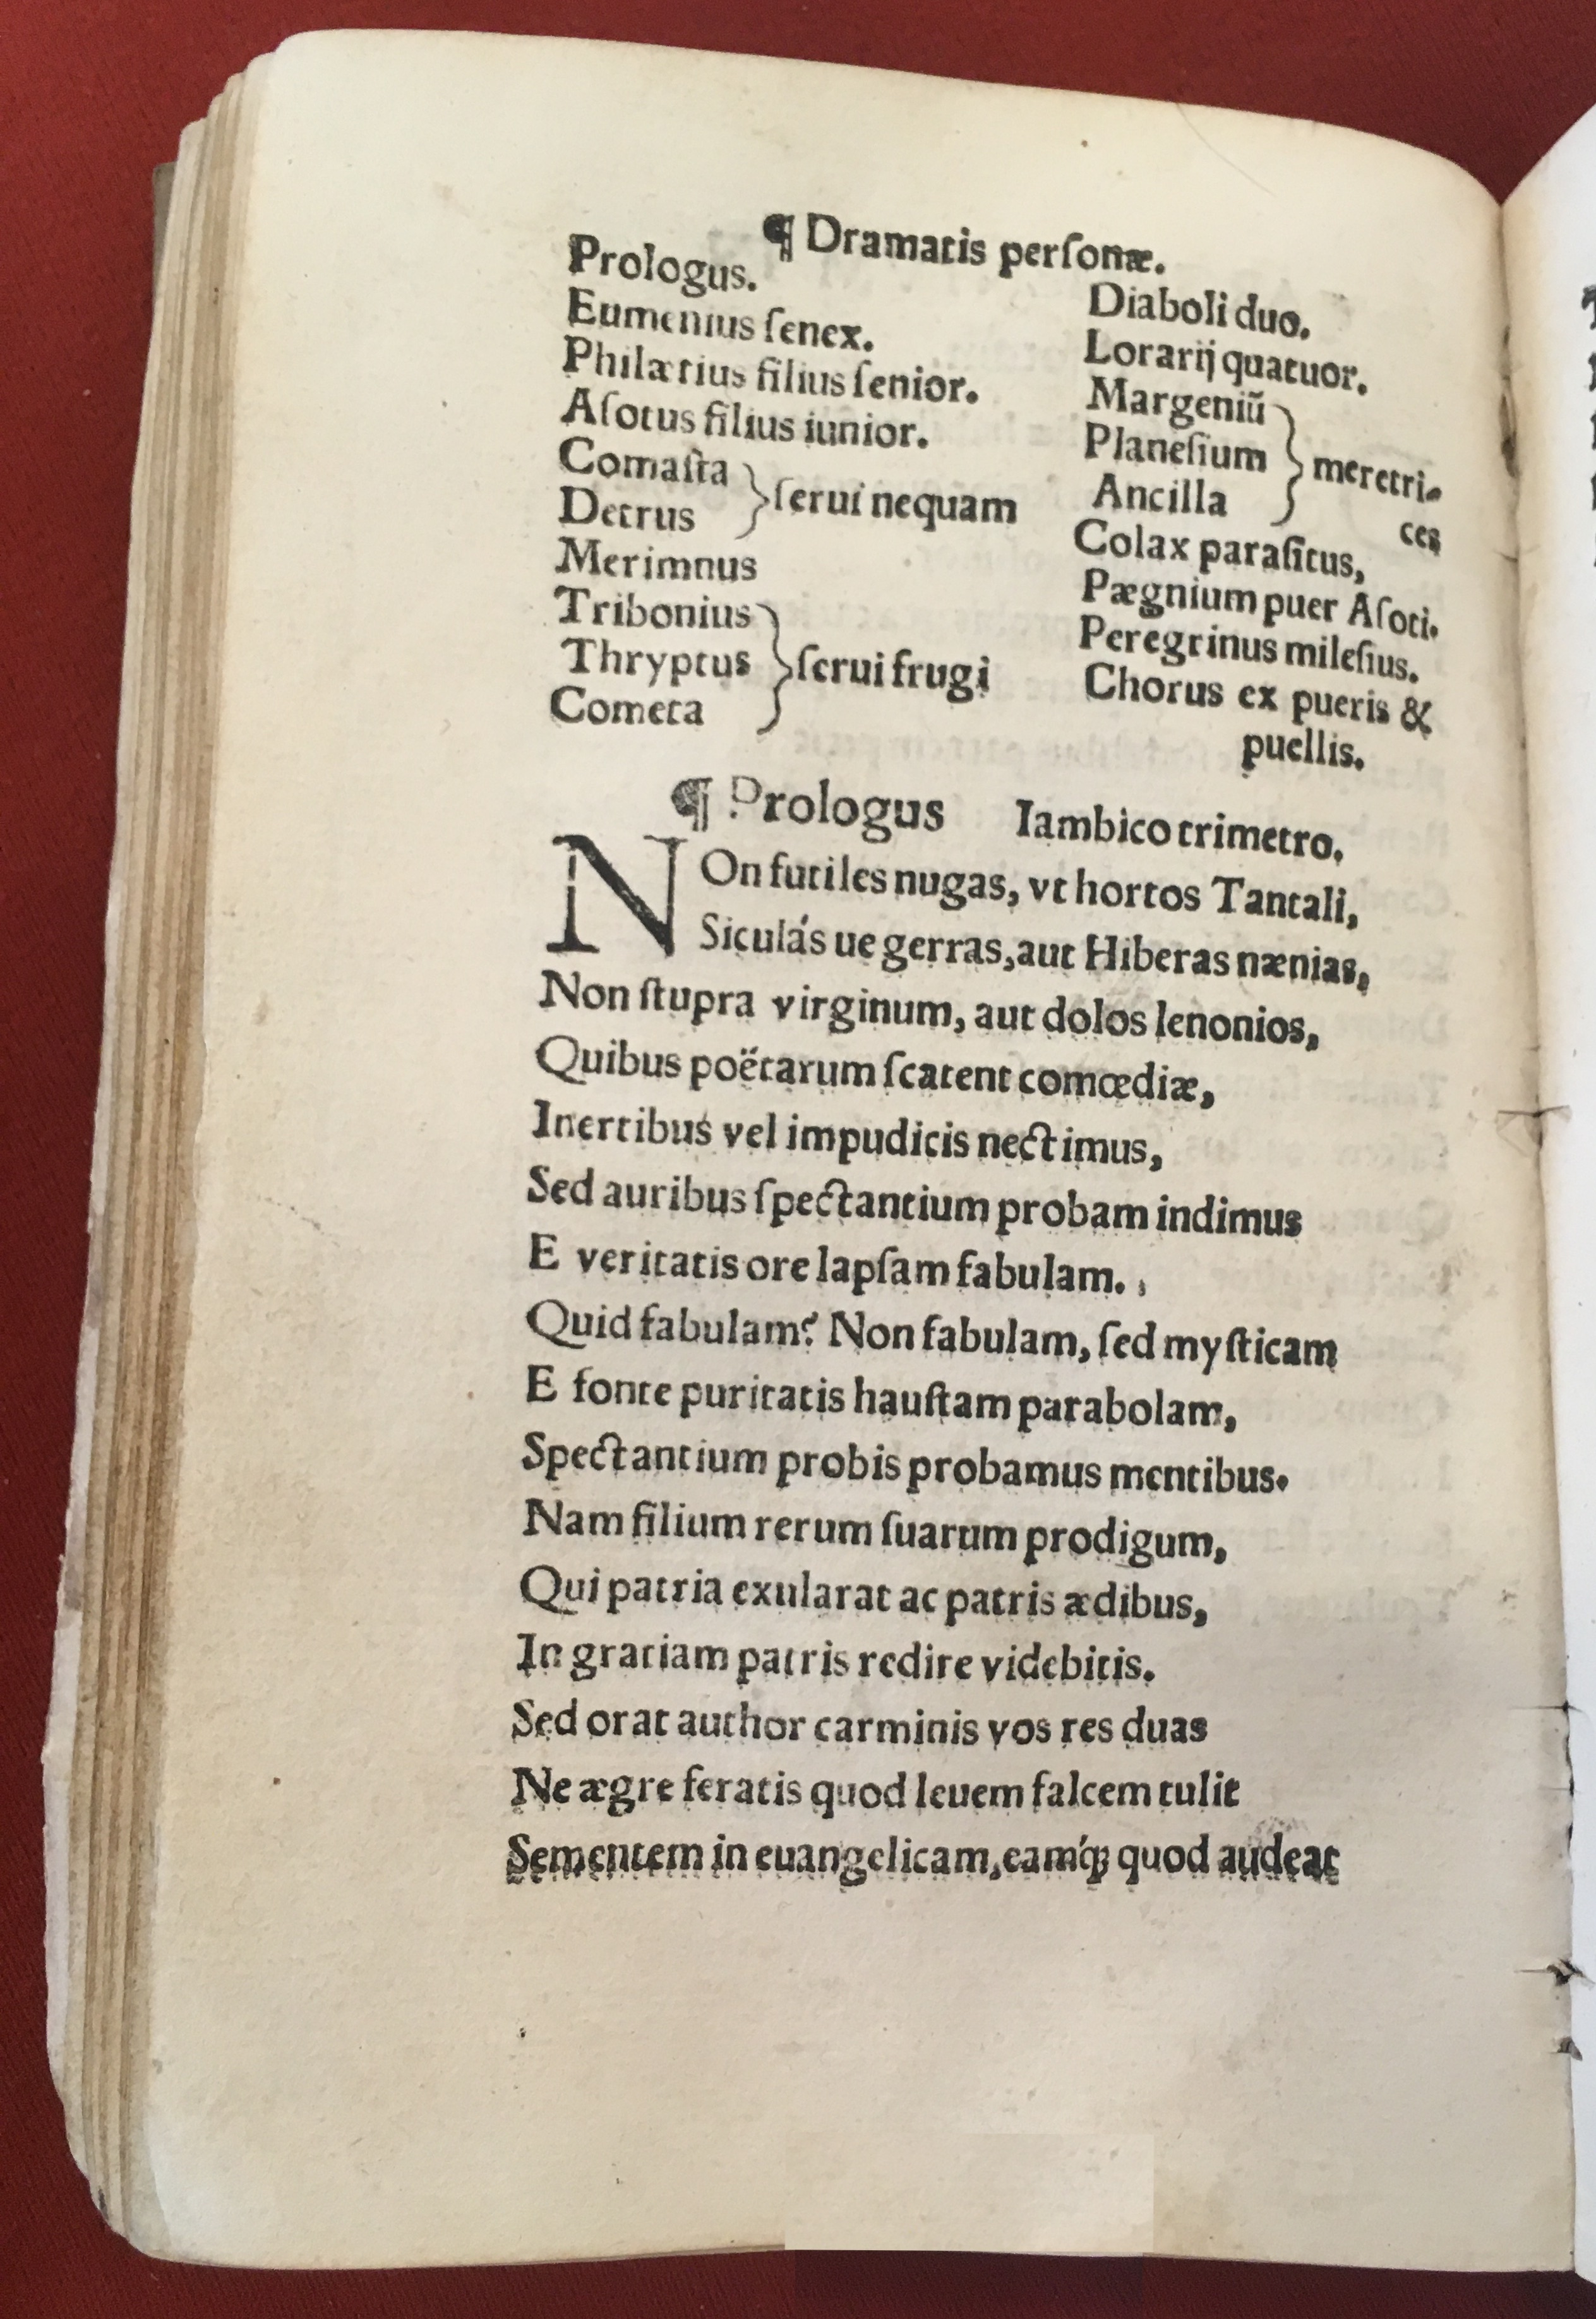 ¶ Dramatis perſonæ.
Prologus.
Eumenius ſenex.
Philætius filius ſenior.
Aſotus filius iunior.
Comaſta
Detrus
} ſerui nequam
Merimnus
Tribonius
Thryptus
Cometa
} ſerui frugi
Diaboli duo.
Lorarij quatuor.
Margeniū
Planeſium
Ancilla
} meretri-
ces
Colax paraſitus,
Pægnium puer Aſoti.
Peregrinus mileſius.
Chorus ex pueris &
puellis.
¶ Prologus Iambico trimetro.
NOn futiles nugas, vt hortos Tantali,
Siculás ue gerras, aut Hiberas nænias,
Non ſtupra virginum, aut dolos lenonios,
Quibus poëtarum ſcatent comœdiæ,
Inertibus vel impudicis nectimus,
Sed auribus ſpectantium probam indimus
E veritatis ore lapſam fabulam.
Quid fabulam? Non fabulam, ſed myſticam
E fonte puritatis hauſtam parabolam,
Spectantium probis probamus mentibus.
Nam filium rerum ſuarum prodigum,
Qui patria exularat ac patris ædibus,
In gratiam patris redire videbitis.
Sed orat author carminis vos res duas
Ne ægre feratis quod leuem falcem tulit
Sementem in euangelicam, eamq́ꝫ quod audeat